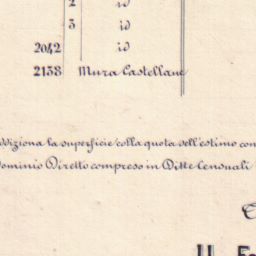 2 id
3 id
2042 id
2138 Mura Castellane
ddiziona la superficie colla quota dell'estimo con
Dominio Diretto compreso in Ditte Censuali